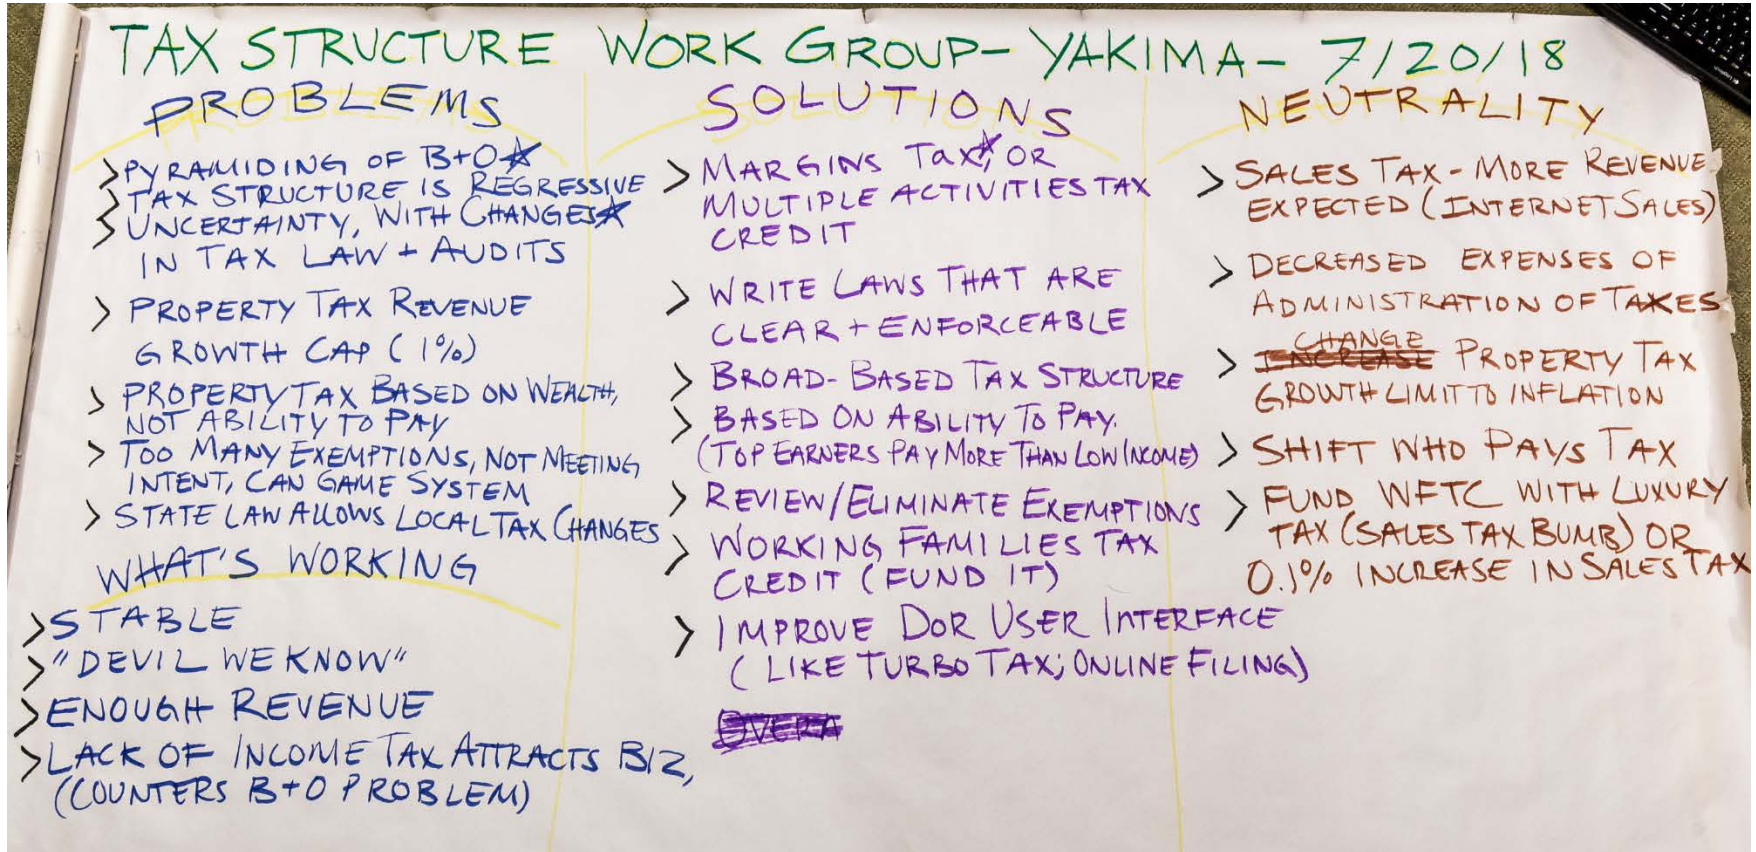 TAX STRUCTURE WORK GROUP - YAKIMA - 7/20/18
PROBLEMS
> PYRAMIDING OF B+O ☆
> TAX STRUCTURE IS REGRESSIVE
> UNCERTAINTY, WITH CHANGES ☆
IN TAX LAW + AUDITS
> PROPERTY TAX REVENUE
GROWTH CAP (1%)
> PROPERTY TAX BASED ON WEALTH,
NOT ABILITY TO PAY
> TOO MANY EXEMPTIONS, NOT MEETING
INTENT, CAN GAME SYSTEM
> STATE LAW ALLOWS LOCAL TAX CHANGES
WHAT'S WORKING
> STABLE
> "DEVIL WE KNOW"
> ENOUGH REVENUE
> LACK OF INCOME TAX ATTRACTS BIZ,
(COUNTERS B+O PROBLEM)
SOLUTIONS
> MARGINS TAX☆, OR
MULTIPLE ACTIVITIES TAX
CREDIT
> WRITE LAWS THAT ARE
CLEAR + ENFORCEABLE
> BROAD-BASED TAX STRUCTURE
> BASED ON ABILITY TO PAY.
(TOP EARNERS PAY MORE THAN LOW INCOME)
> REVIEW/ELIMINATE EXEMPTIONS
> WORKING FAMILIES TAX
CREDIT (FUND IT)
> IMPROVE DOR USER INTERFACE
(LIKE TURBO TAX; ONLINE FILING)
OVERA
NEUTRALITY
> SALES TAX - MORE REVENUE
EXPECTED (INTERNET SALES)
> DECREASED EXPENSES OF
ADMINISTRATION OF TAXES
CHANGE
> INCREASE PROPERTY TAX
GROWTH LIMIT TO INFLATION
> SHIFT WHO PAYS TAX
> FUND WFTC WITH LUXURY
TAX (SALES TAX BUMB) OR
0.1% INCREASE IN SALES TAX